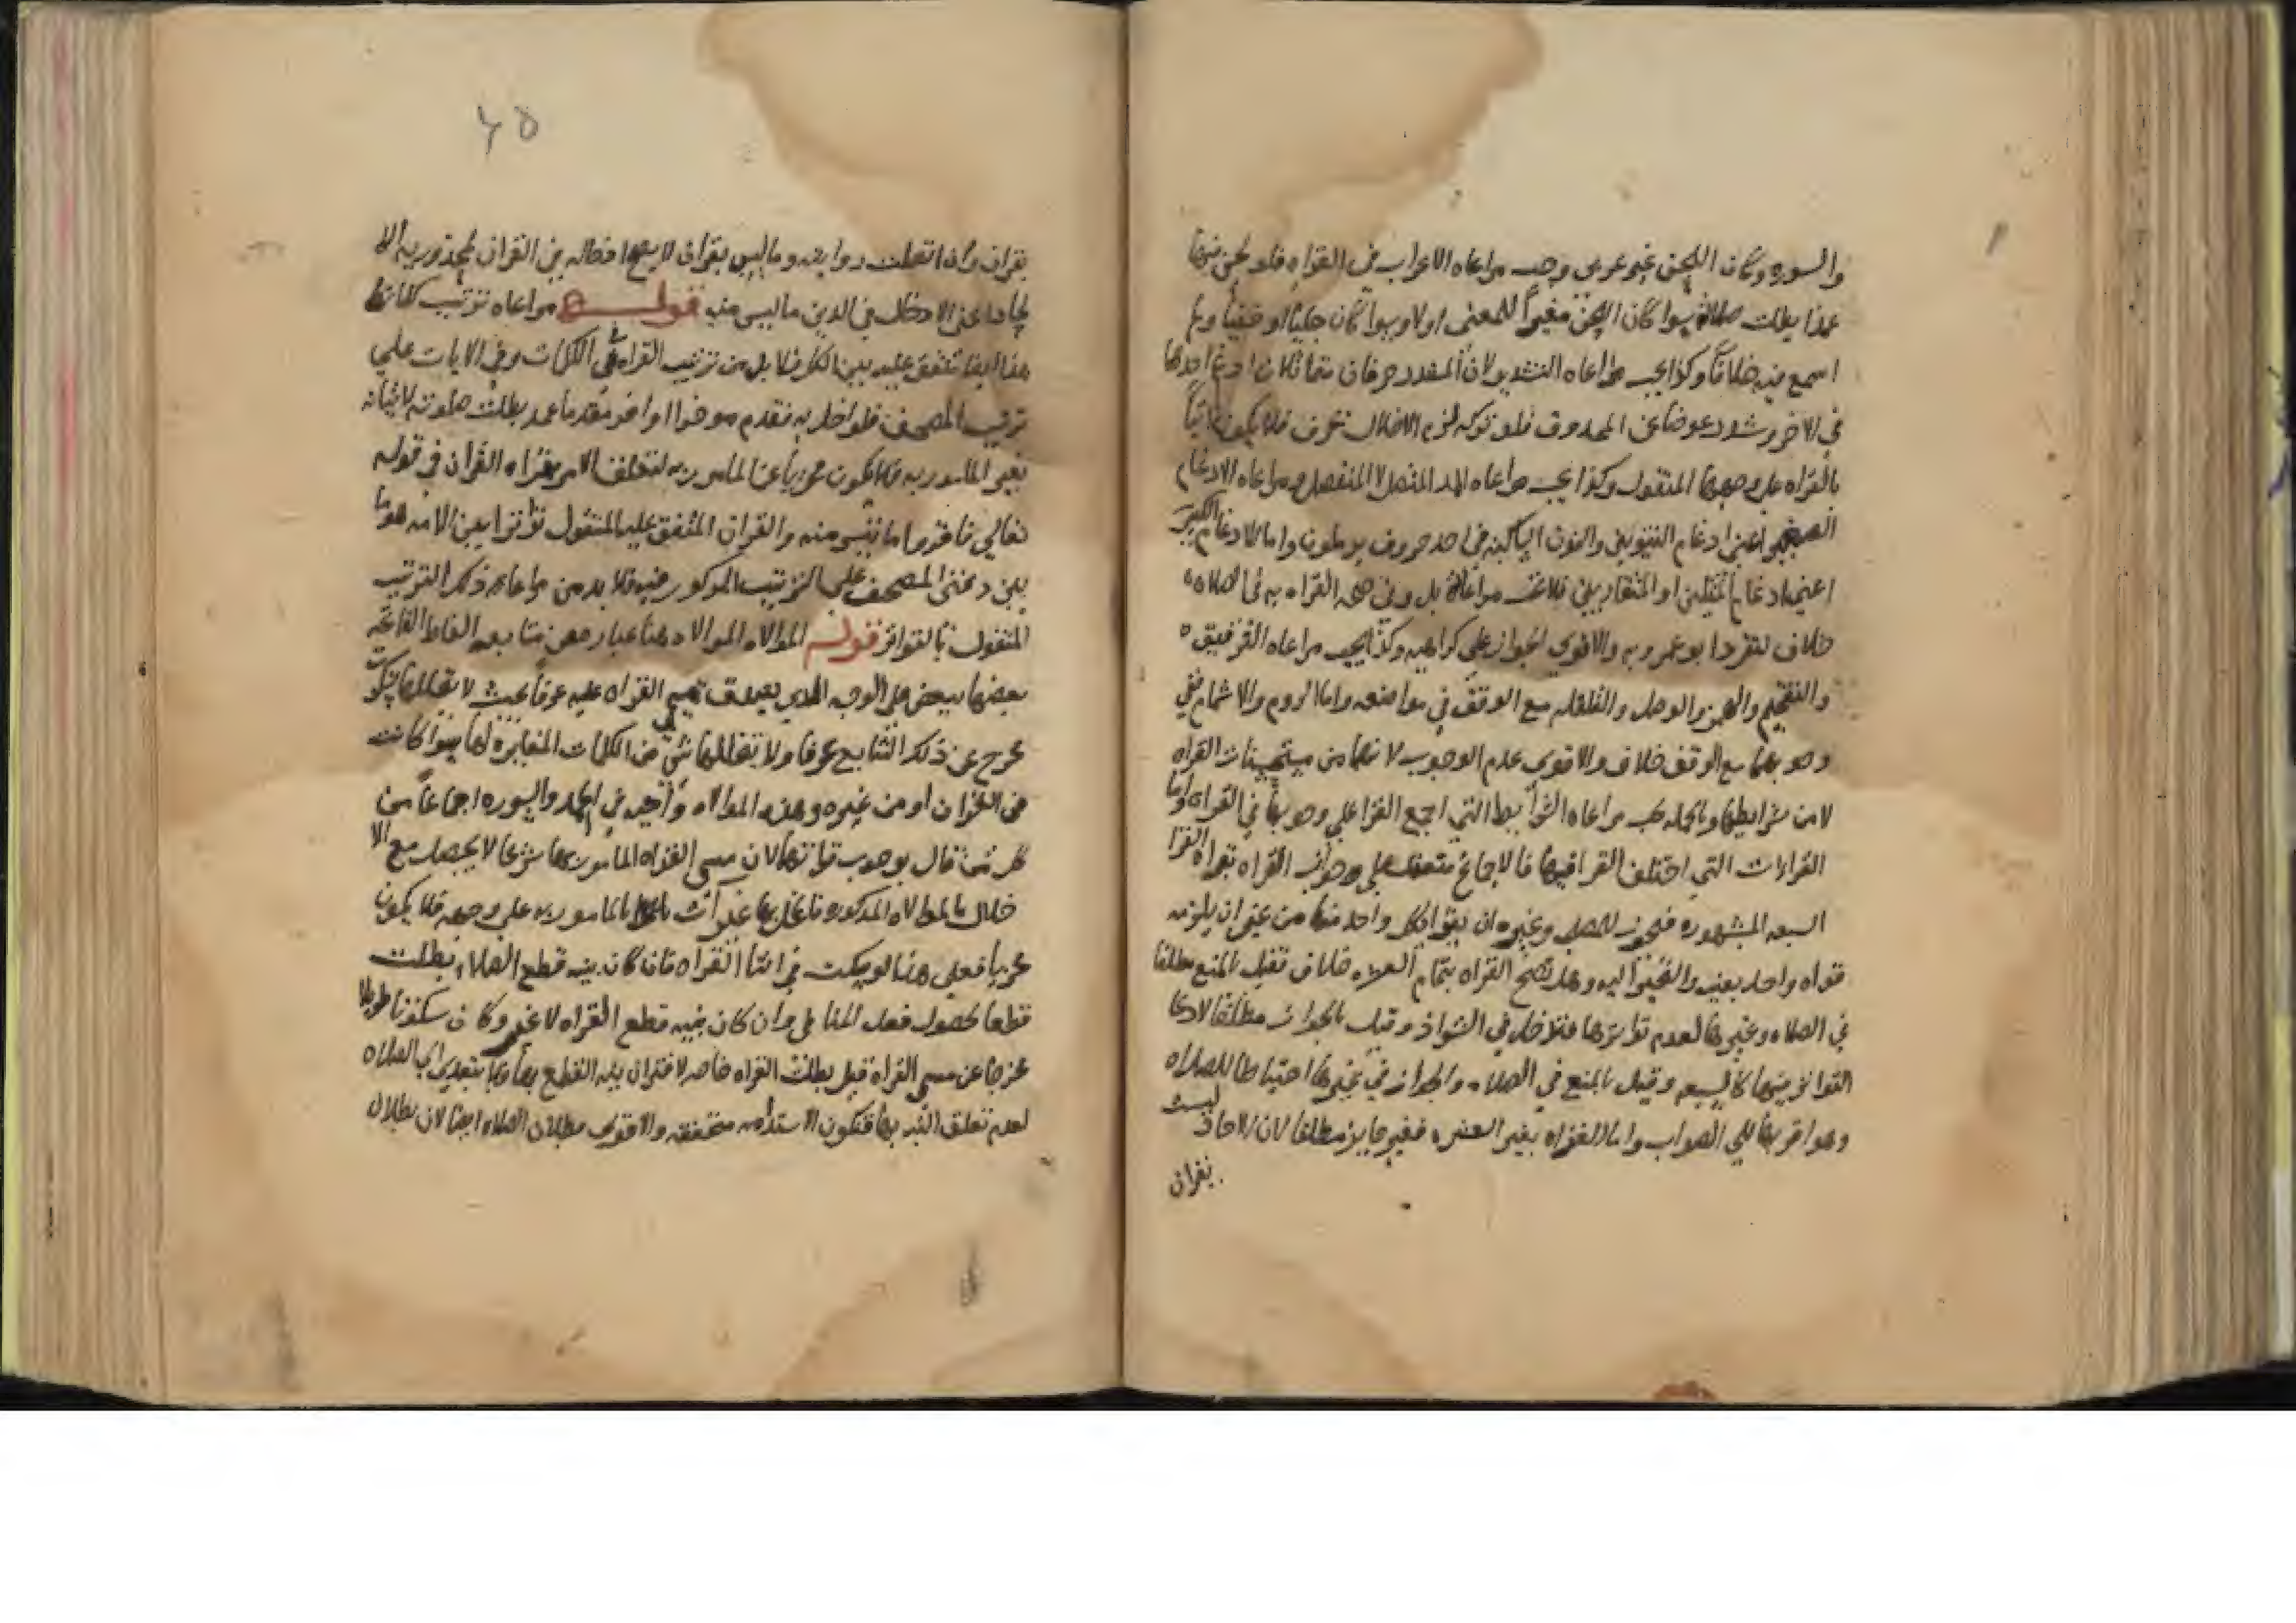 والسوره وكان اللحن غير عربى وجب مراعاه الاعراب في القراه فلو لحن فيها
عمدا بطلت صلاته سوا كان اللحن مغيراً للمعنى اولا وسوا كان جليّا او خفيّا
اسمع فيه خلافاً وكذا يجب مراعاه التشديد لان المشدد حرفان متماثلان ادغم احدهما
في الاخر وشدد عوضا عن المحذوف فلو تركه لزم الاخلال بحرف فلا يكون اتياً
بالقراه على وجهها المنقول وكذا يجب مراعاه المد المتصل لا المنفصل ومراعاه الادغام
الصغير اعنى ادغام التنوين والنون الساكنه في احد حروف يرملون واما الادغام الكبير
اعنى ادغام المثلين او المتقاربين فلا تجب مراعاته بل وفي القراه به في الصلاه
خلاف لتفرد ابو عمرو به والاقوى الجواز على كراهيه وكذا يجب مراعاه الترقيق
والتفخيم والهمز والوصل والقلقله مع الوقف في مواضعه واما الروم والاشمام ففي
وجوبهما مع الوقف خلاف والاقوى عدم الوجوب لانهما من مستحسنات القراه
لا من شرايطها وبالجمله يجب مراعاه الشرايط التي اجمع القرا على وجوبها في القراه واما
القراءات التي اختلف القرا فيها فالاجماع منعقد على وجواز القراه بقراه القرا
السبعه المشهوره فيجوز للمصلى وغيره ان يقرا بكل واحد منها من غير ان يلزمه
قراه واحد بعينه والتخير اليه وهل تصح القراه بتمام العشره خلاف فقيل بالمنع مطلقا
في الصلاه وغيرها لعدم تواترها فتدخل في الشواذ وقيل بالجواز مطلقا لادعا
التواتر فيها كالسبعه وقيل بالمنع في الصلاه والجواز في غيرها احتياطا للصلاه
وهو اقربها الي الصواب واما القراه بغير العشره فغير جايز مطلقا لان الاحاد ليست
بقران
٤٥
بقران وان اتصلت روايته وما ليس بقران لا يصح ادخاله في القران المامور به الا
لجاد عن الادخال في الدين ما ليس منه قوله مراعاه ترتيب كلماتها
هذا ايضا متفق عليه بين الكل فلا بد من ترتيب القراه في الكلمات وفي الايات على
ترتيب المصحف فلو اخل به فقدم موخرا او اخر مقدما عمدا بطلت صلوته لاتيانه
بغير المامور به فلا يكون مجزيا عن المامور به لتعلق الامر بقراه القران في قوله
تعالى فاقروا ما تيسر منه والقران المتفق عليه المنقول تواترا بين الامه هو ما
بين دفتى المصحف على الترتيب المذكور فيه فلا بد من مراعاه ذلك الترتيب
المنقول بالتواتر قوله الموالاه الموالاه هنا عباره عن متابعه الفاظ الفاتحه
بعضها ببعض على الوجه الذي يصدق تسمى القراه عليه عرفاً بحيث لا يتخللها سكوت
يخرج عن ذلك التتابع عرفا ولا يتخللها شيٌ من الكلمات المغايره لها سوا كانت
من القران او من غيره وهذه الموالاه واجبه في الحمد والسوره اجماعاً من
كل من قال بوجوب قراتهما لان مسمى القراه المامور بها شرعا لا يحصل مع الا
خلال بالموالاه المذكوره فالمخل بها غير ات بالمامور به على وجهه فلا يكون
مجزيا فعلى هذا لو سكت في اثنا القراه فان كان بنيه قطع الصلاه بطلت
قطعا لحصول فعل المنافي وان كان بنيه قطع القراه لا غير وكان سكوتا طويلا
مخرجا عن مسمى القراه قيل بطلت القراه خاصه لاقتران نيه القطع بها ولا يتعدى الى الصلاه
لعدم تعلق النيه بها فتكون الاستدامه متحققه والاقوى بطلان الصلاه ايضا لان بطلان